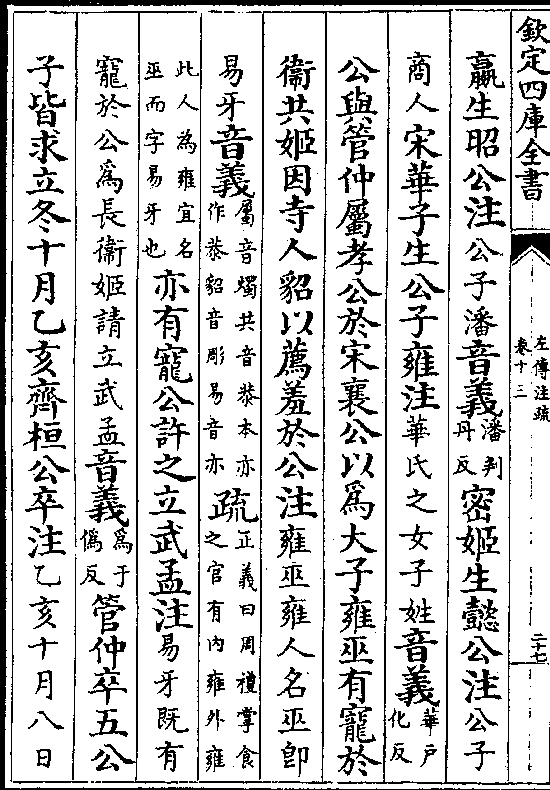 欽定四庫全書
左傳注疏
卷十三
二十七
嬴生昭公注公子潘音義潘判丹反密姬生懿公注公子
商人宋華子生公子雍注華氏之女子姓音義華戶化反
公與管仲屬孝公於宋襄公以爲大子雍巫有寵於
衞共姬因寺人貂以薦羞於公注雍巫雍人名巫卽
易牙音義屬音燭共音恭本亦作恭貂音彫易音亦疏正義曰周禮掌食之官有內雍外雍
此人為雍宜名巫而字易牙也亦有寵公許之立武孟注易牙既有
寵於公爲長衞姬請立武孟音義爲于僞反管仲卒五公
子皆求立冬十月乙亥齊桓公卒注乙亥十月八日